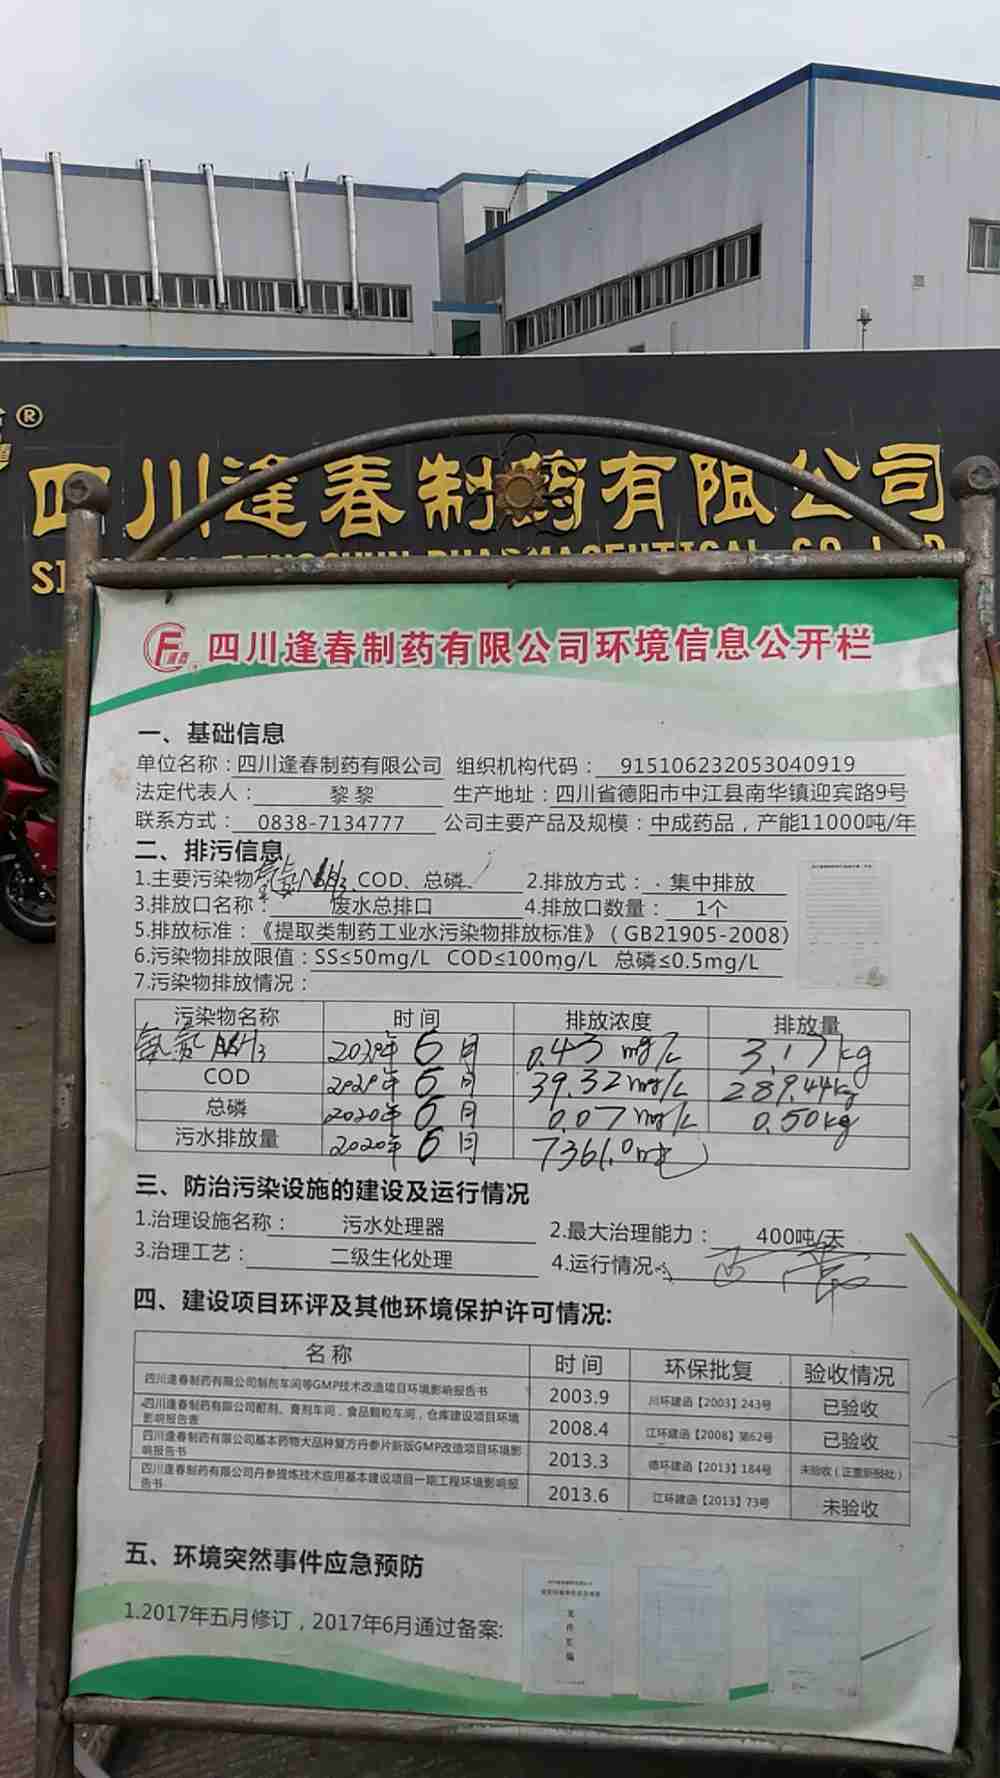 ®
四川逢春制药有限公司
四川逢春制药有限公司环境信息公开栏
一、基础信息
单位名称：四川逢春制药有限公司 组织机构代码： 915106232053040919
法定代表人： 黎黎 生产地址：四川省德阳市中江县南华镇迎宾路9号
联系方式： 0838-7134777 公司主要产品及规模：中成药品，产能11000吨/年
二、排污信息
1.主要污染物 氨氮NH3、COD、总磷、 2.排放方式： 集中排放
3.排放口名称： 废水总排口 4.排放口数量： 1个
5.排放标准：《提取类制药工业水污染物排放标准》（GB21905-2008）
6.污染物排放限值：SS≤50mg/L COD≤100mg/L 总磷≤0.5mg/L
7.污染物排放情况：
污染物名称 时间 排放浓度 排放量
氨氮 NH3 2020年6月 0.43 mg/L 3.17kg
COD 2020年6月 39.32mg/L 289.44kg
总磷 2020年6月 0.07mg/L 0.50kg
污水排放量 2020年6月 7361.0吨
三、防治污染设施的建设及运行情况
1.治理设施名称： 污水处理器 2.最大治理能力： 400吨/天
3.治理工艺： 二级生化处理 4.运行情况： 正常
四、建设项目环评及其他环境保护许可情况:
名称 时间 环保批复 验收情况
四川逢春制药有限公司制剂车间等GMP技术改造项目环境影响报告书 2003.9 川环建函【2003】243号 已验收
四川逢春制药有限公司酊剂、膏剂车间，食品颗粒车间，仓库建设项目环境
影响报告表 2008.4 江环建函【2008】第62号 已验收
四川逢春制药有限公司基本药物大品种复方丹参片新版GMP改造项目环境影
响报告书 2013.3 德环建函【2013】184号 未验收（正重新报批）
四川逢春制药有限公司丹参提炼技术应用基本建设项目一期工程环境影响报
告书 2013.6 江环建函【2013】73号 未验收
五、环境突然事件应急预防
1.2017年五月修订，2017年6月通过备案: